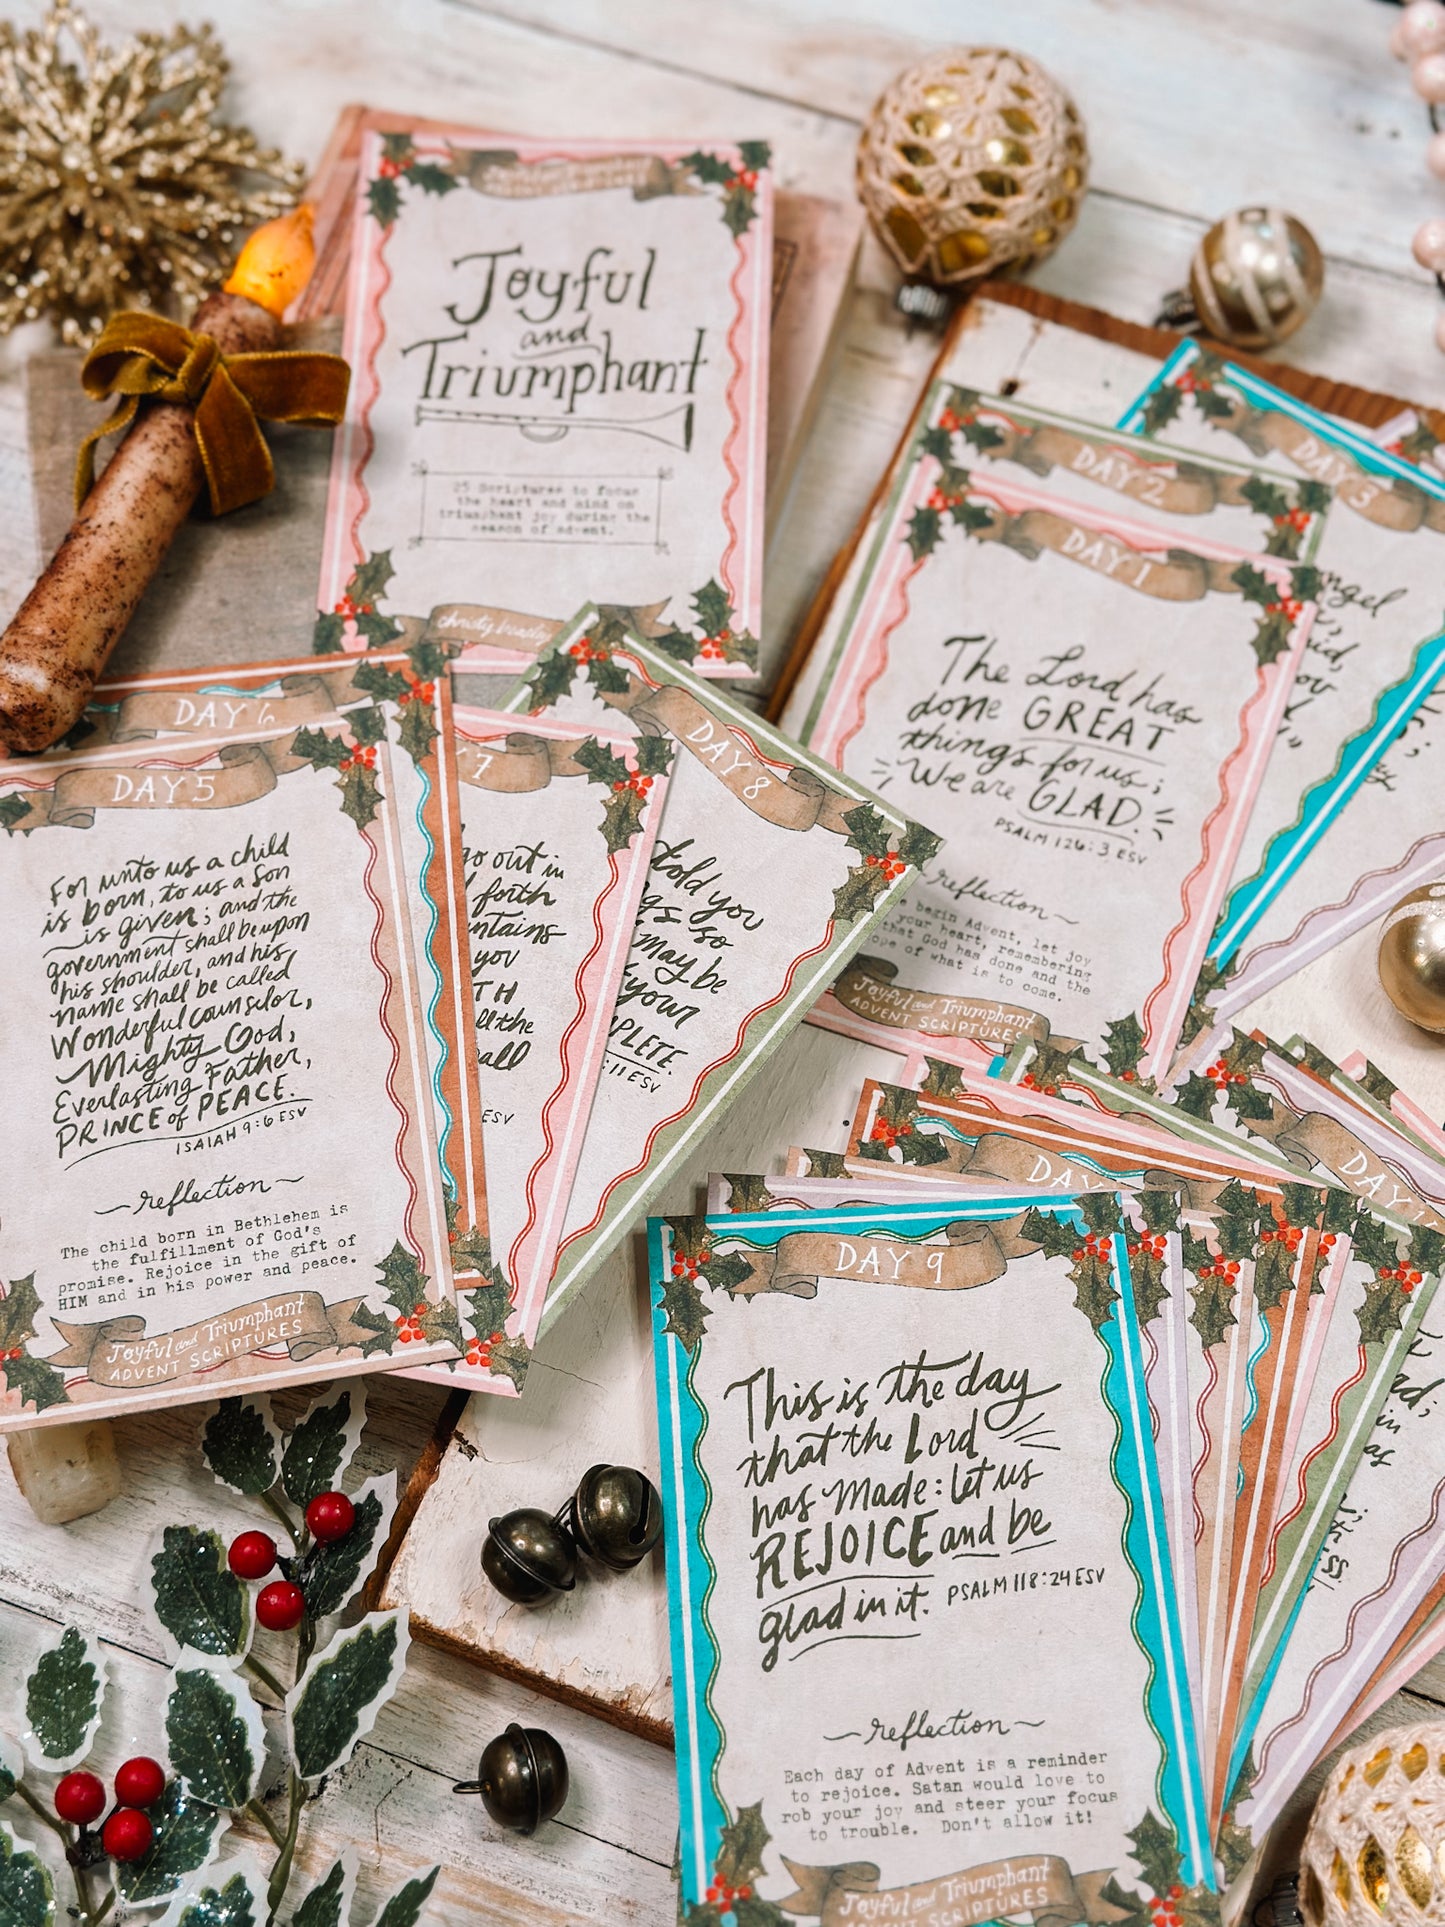 Joyful
and
Triumphant
25 Scriptures to focus
the heart and mind on
triumphant joy during the
season of advent.
christy beasley
DAY 3
DAY 2
DAY 1
The Lord has
done GREAT
things for us;
We are GLAD.
PSALM 126:3 ESV
reflection
begin Advent, let
your heart, remembering
that God has done and the
of what is to come.
Joyful and Triumphant
ADVENT SCRIPTURES
DAY 6
DAY 5
For unto us a child
is born, to us a son
is given; and the
government shall be upon
his shoulder, and his
name shall be called
Wonderful counselor,
Mighty God,
Everlasting Father,
PRINCE of PEACE.
ISAIAH 9:6 ESV
reflection
The child born in Bethlehem is
the fulfillment of God's
promise. Rejoice in the gift of
HIM and in his power and peace.
Joyful and Triumphant
ADVENT SCRIPTURES
7
go out in
forth
you
all the
ESV
DAY 8
told you
so
may be
your
:11 ESV
DAY
DAY
DAY 9
This is the day
that the Lord
has made: let us
REJOICE and be
glad in it. PSALM 118:24 ESV
reflection
Each day of Advent is a reminder
to rejoice. Satan would love to
rob your joy and steer your focus
to trouble. Don't allow it!
Joyful and Triumphant
ADVENT SCRIPTURES